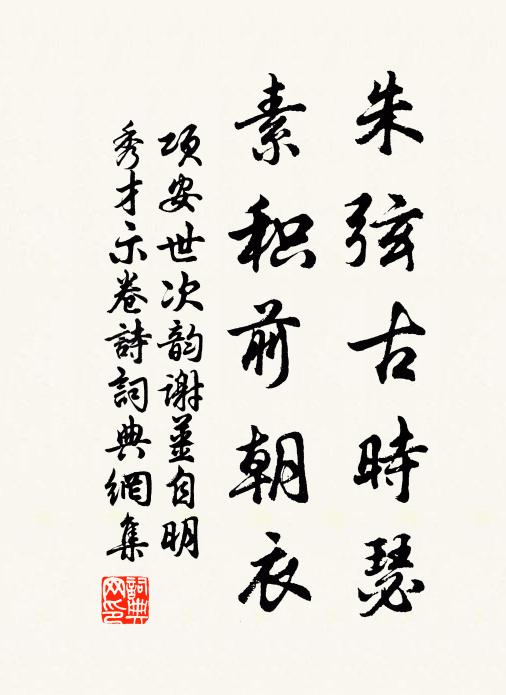 朱弦古時瑟
素积前朝衣
项安世次韵谢姜自明
秀才示卷詩詞典網集
詞典網印